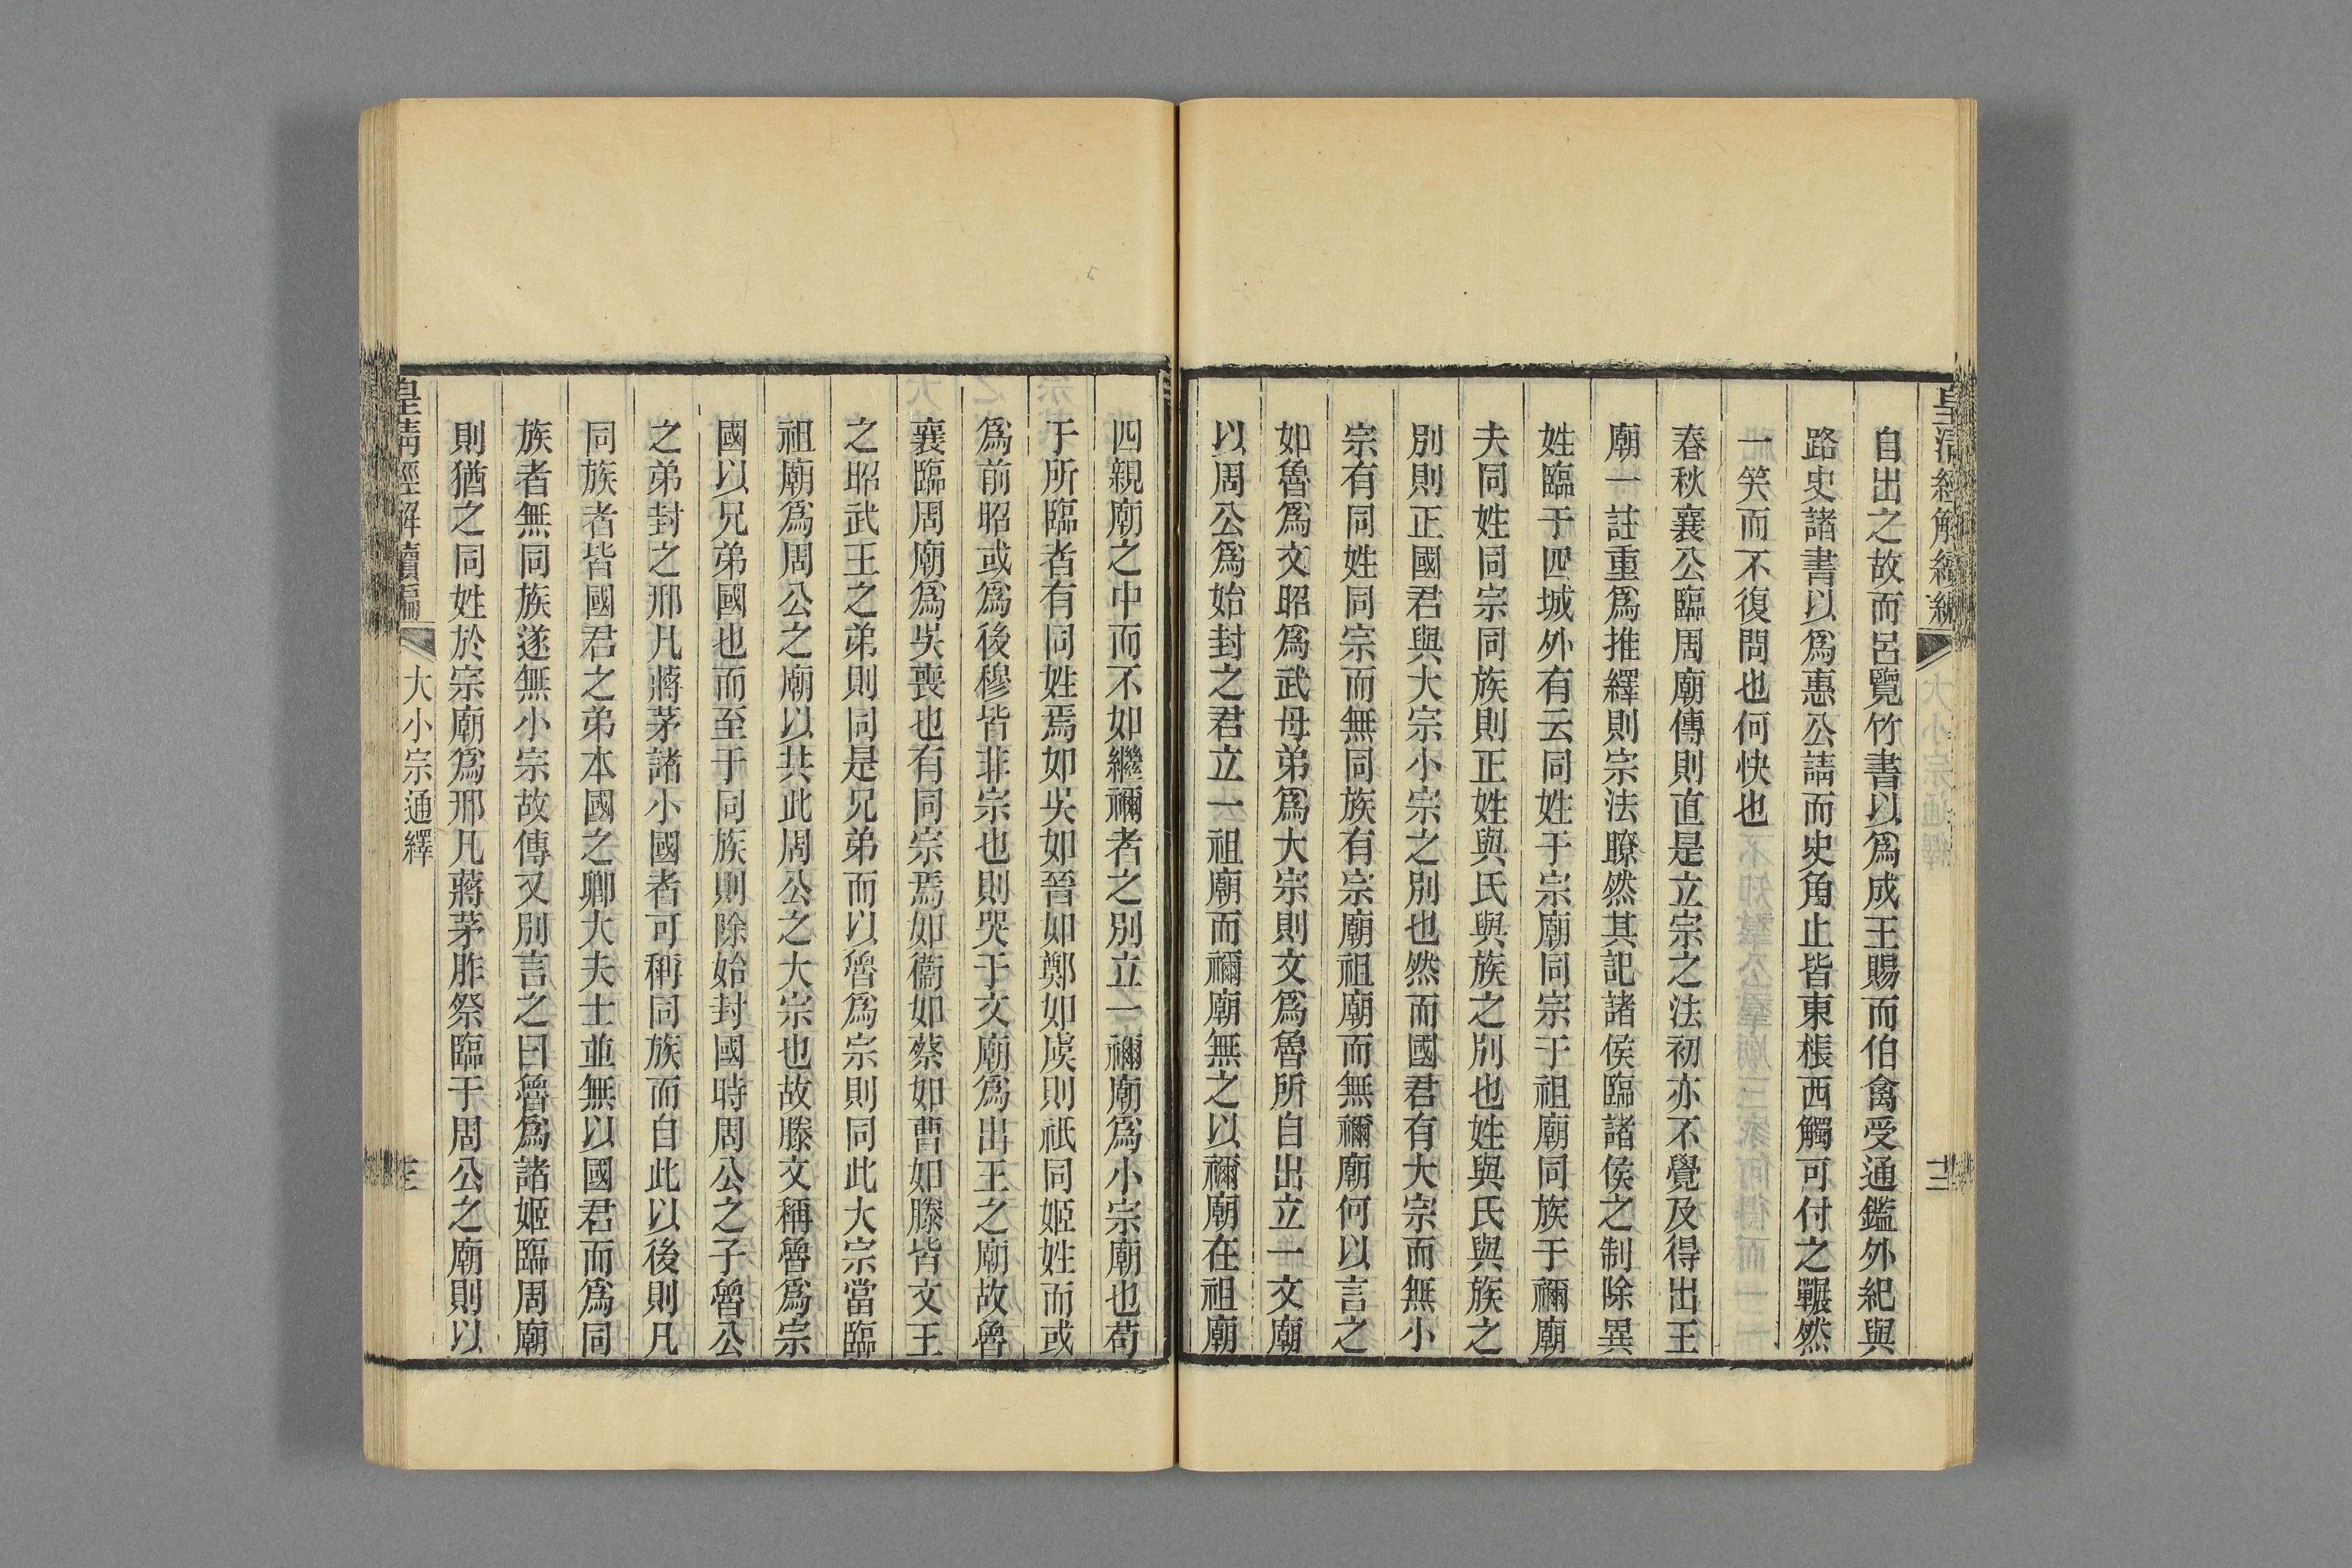 皇清經解續編
大小宗通繹
自出之故而呂覽竹書以爲成王賜而伯禽受通鑑外紀與
路史諸書以爲惠公請而史角止皆東棖西觸可付之囅然
一笑而不復問也何快也
春秋襄公臨周廟傳則直是立宗之法初亦不覺及得出王
廟一註重爲推繹則宗法瞭然其記諸侯臨諸侯之制除異
姓臨于四城外有云同姓于宗廟同宗于祖廟同族于禰廟
夫同姓同宗同族則正姓與氏與族之別也姓與氏與族之
別則正國君與大宗小宗之別也然而國君有大宗而無小
宗有同姓同宗而無同族有宗廟祖廟而無禰廟何以言之
如魯爲文昭爲武母弟爲大宗則文爲魯所自出立一文廟
以周公爲始封之君立一祖廟而禰廟無之以禰廟在祖廟
四親廟之中而不如繼禰者之別立一禰廟爲小宗廟也苟
于所臨者有同姓焉如吳如晉如鄭如虞則祇同姬姓而或
爲前昭或爲後穆皆非宗也則哭于文廟爲出王之廟故魯
襄臨周廟爲吳喪也有同宗焉如衞如蔡如曹如滕皆文王
之昭武王之弟則同是兄弟而以魯爲宗則同此大宗當臨
祖廟爲周公之廟以共此周公之大宗也故滕文稱魯爲宗
國以兄弟國也而至于同族則除始封國時周公之子魯公
之弟封之邢凡蔣茅諸小國者可稱同族而自此以後則凡
同族者皆國君之弟本國之卿大夫士並無以國君而爲同
族者無同族遂無小宗故傳又別言之曰魯爲諸姬臨周廟
則猶之同姓於宗廟爲邢凡蔣茅胙祭臨于周公之廟則以
皇清經解續編
大小宗通繹